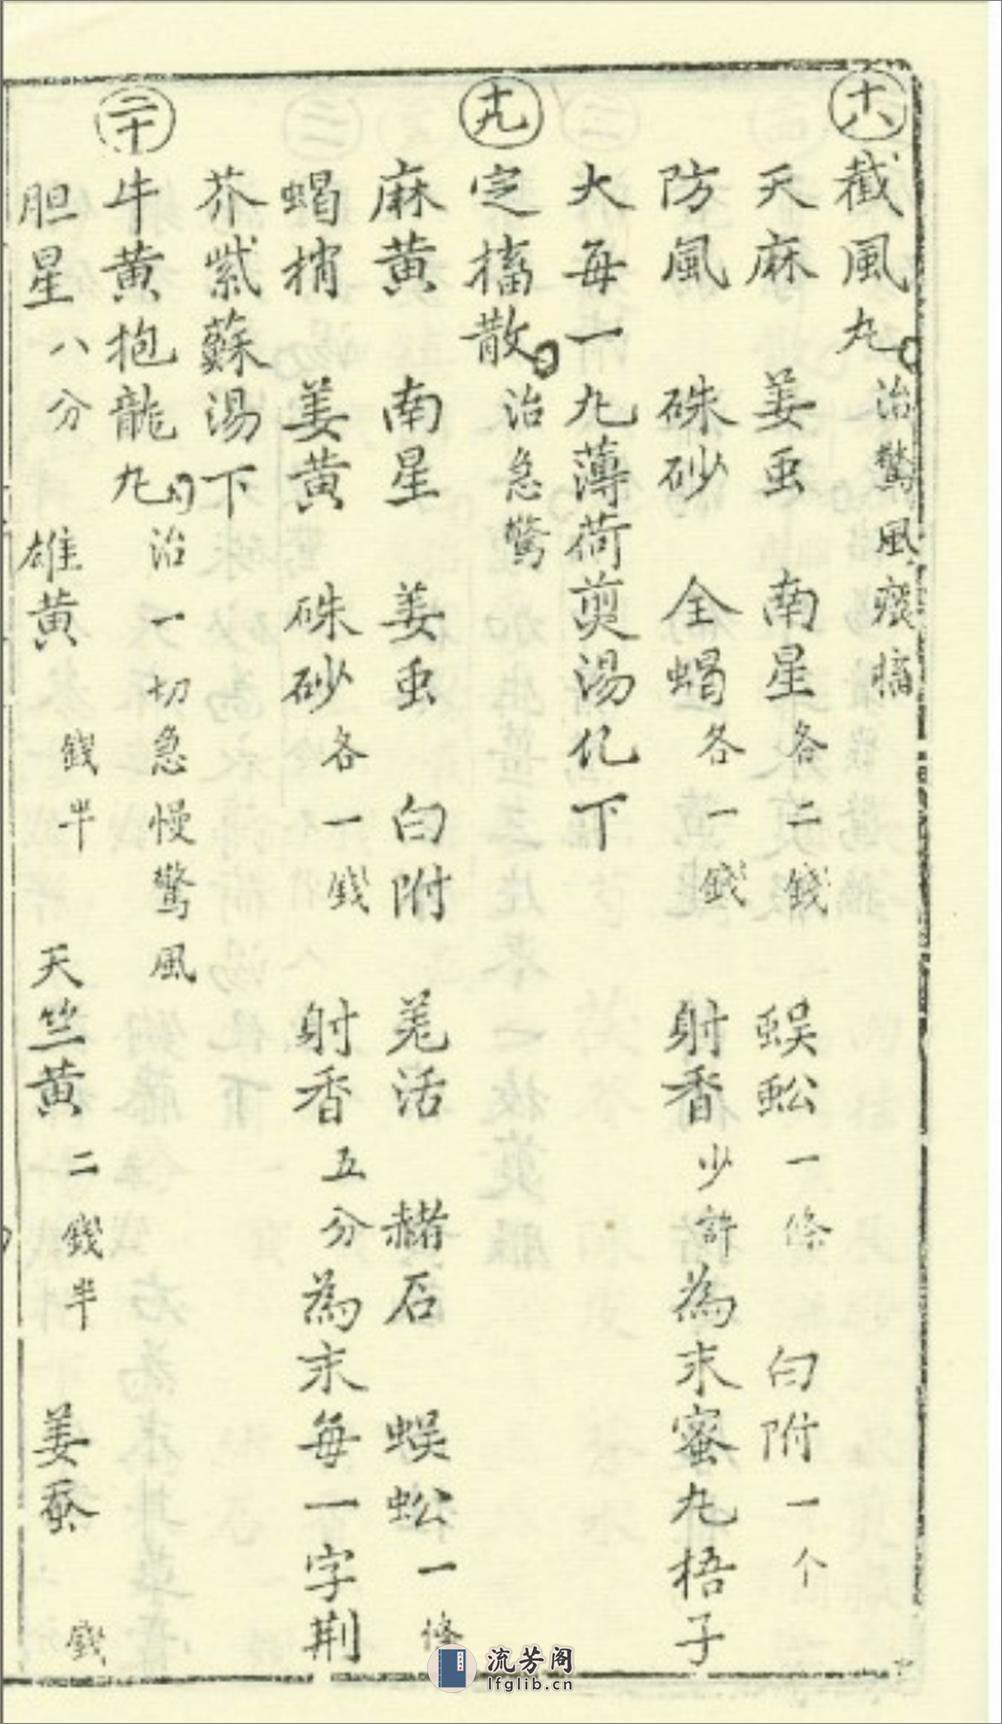 十八 截風丸 治驚風痰搐
天麻 姜虫 南星各二錢 蜈蚣一條 白附一个
防風 硃砂 全蝎各一錢 射香少許為末蜜丸梧子
大每一丸薄荷煎湯化下
十九 定搐散 治急驚
麻黄 南星 姜虫 白附 羌活 赭石 蜈蚣一條
蝎梢 姜黄 硃砂各一錢 射香五分為末每一字荆
芥紫蘇湯下
二十 牛黄抱龍丸 治一切急慢驚風
胆星八分 雄黄錢半 天竺黄二錢半 姜蚕錢
流芳阁
lfglib.cn